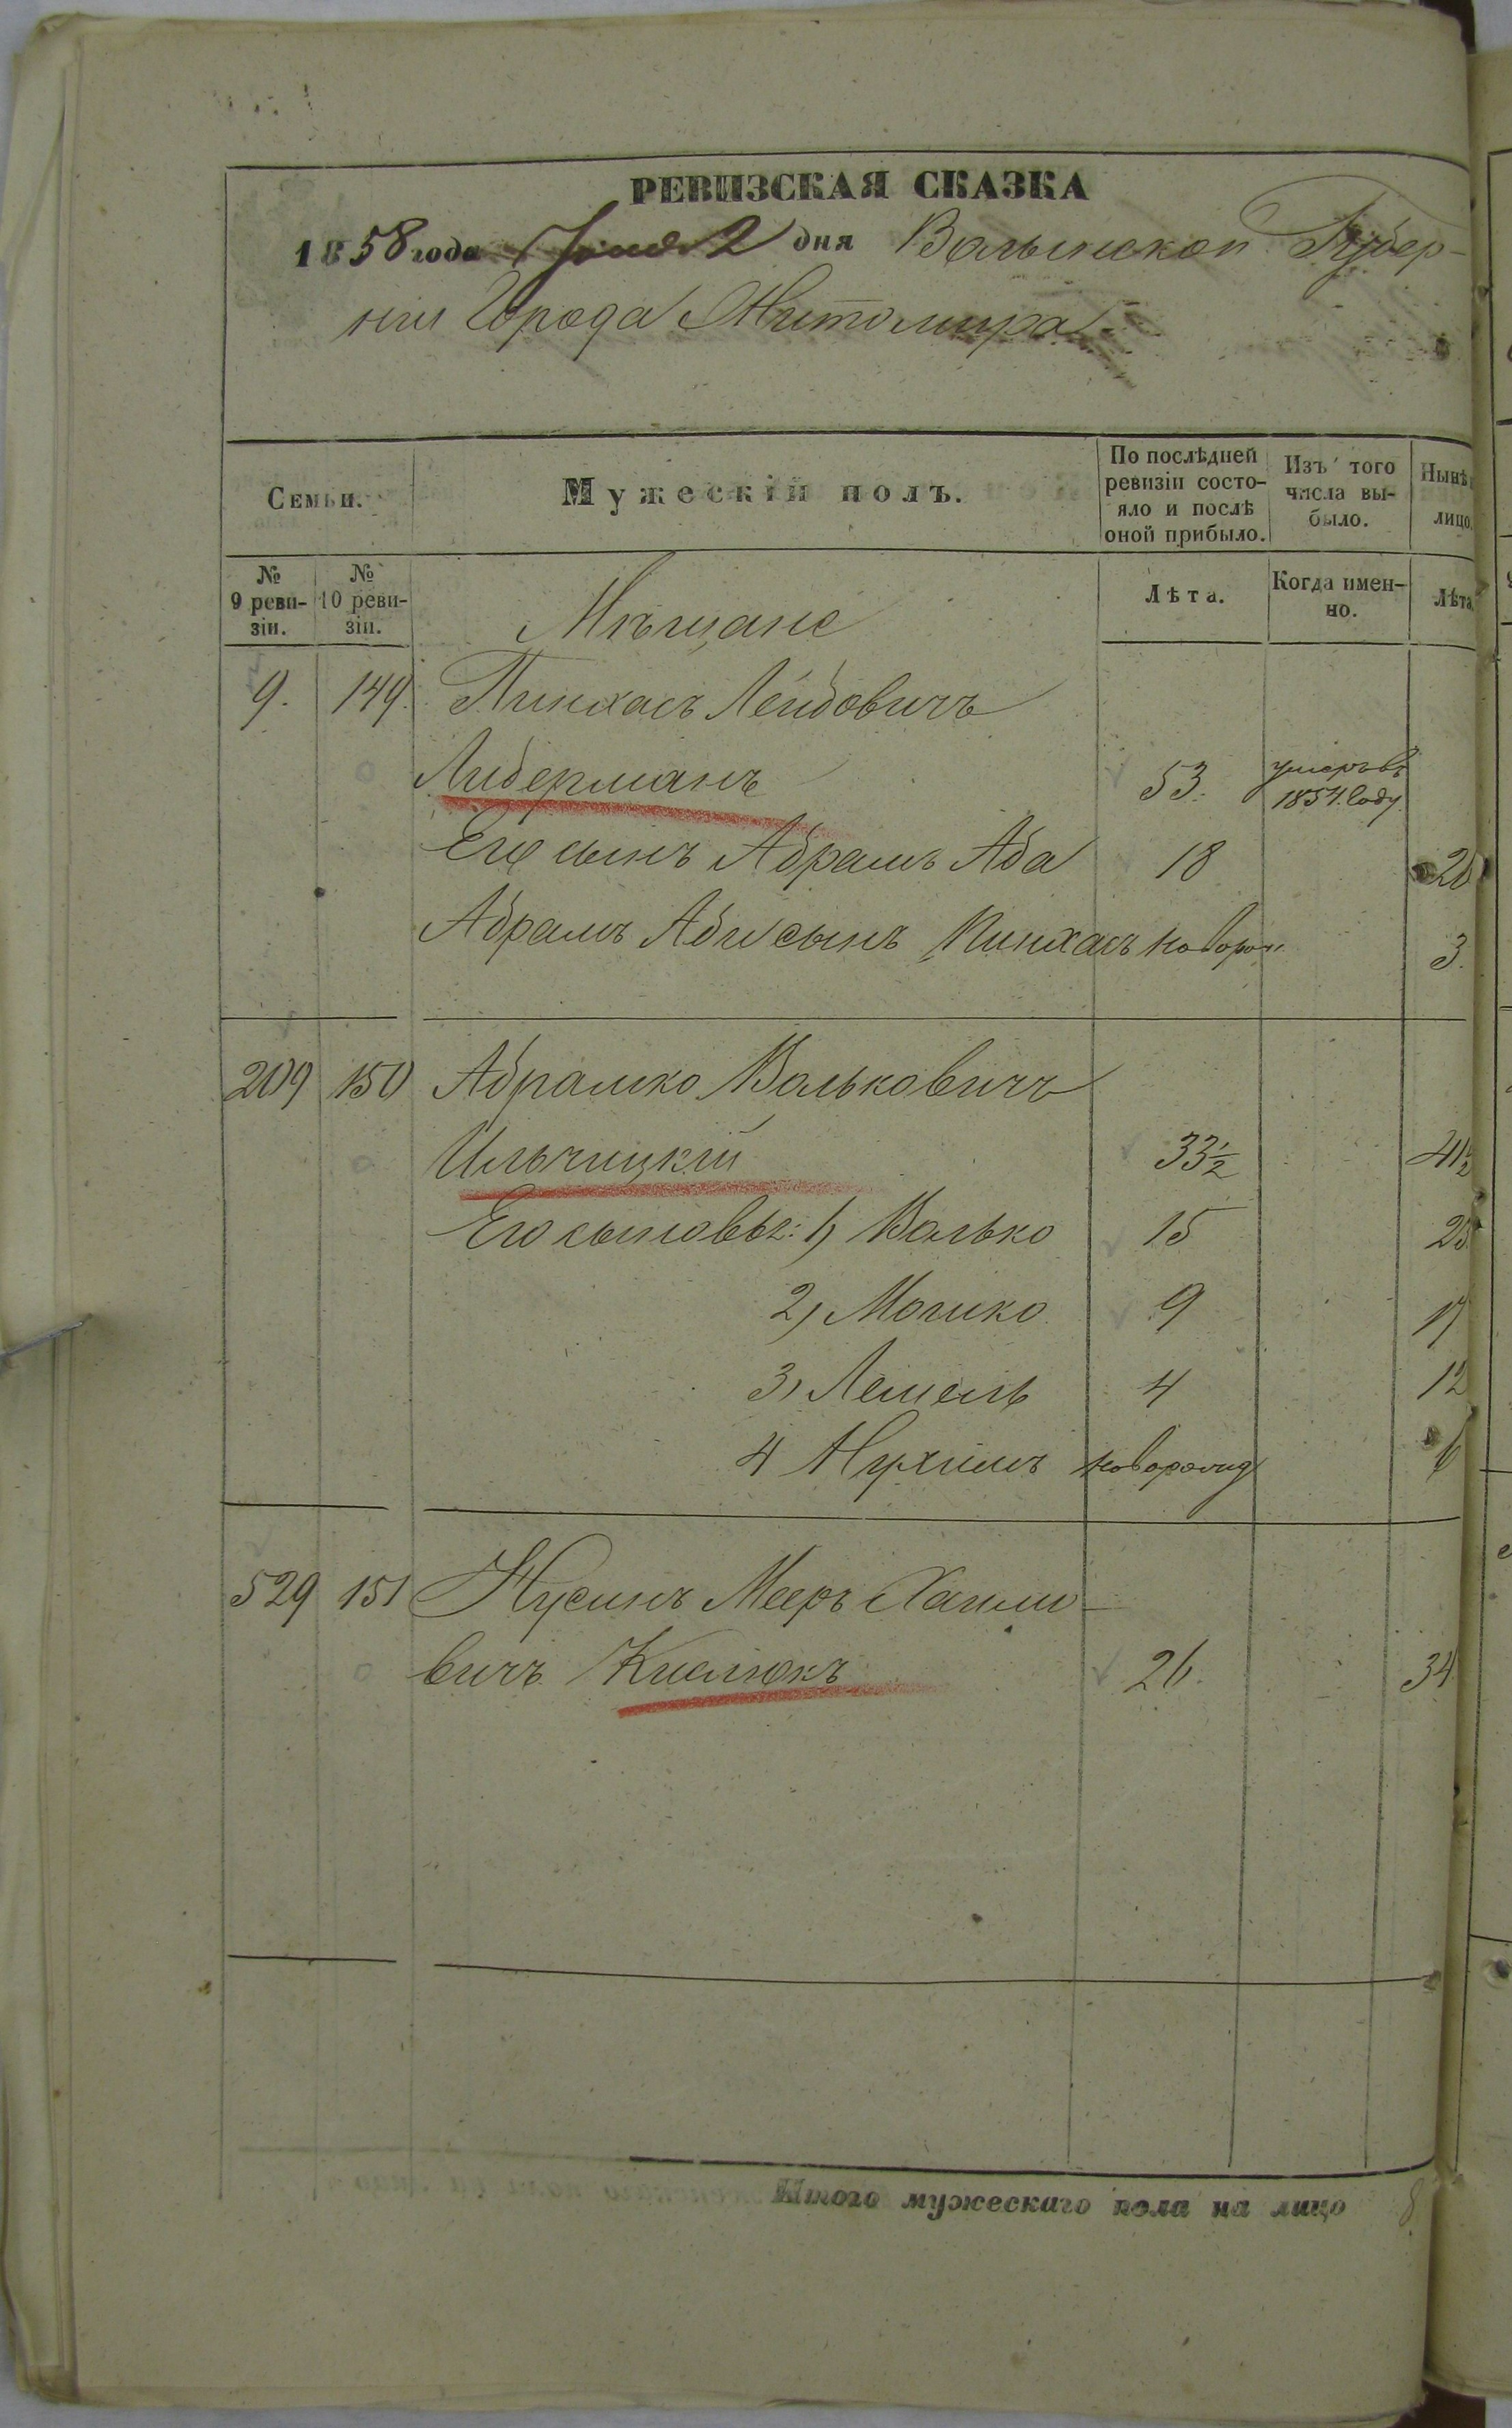 РЕВИЗСКАЯ СКАЗКА
1858 года Іюня 2 дня Волынской Губер-
ніи Города Житомира
Семьи.
Мужескій полъ.
По послѣдней ревизіи состо-яло и послѣ оной прибыло.
Изъ того числа вы-было.
Нынѣ лицо.
№ 9 реви-зіи.
№ 10 реви-зіи.
Лѣта.
Когда имен-но.
Лѣта
Мѣщане
9. 149. Пинхасъ Лейбовичъ
Либерманъ 53. умеръ въ 1854. году.
Его сынъ Абрамъ Аба 18 26
Абрамъ Аби сынъ Пинхасъ новорож 3.
209 150 Абрамко Вольковичъ
Ильчицкій 33½ 41½
Его сыновья: 1) Волько 15 23
2) Мошко 9 17
3) Лемель 4 12
4 Нухимъ новорожд 6
529 151 Нусинъ Мееръ Хаимо-
вичъ Кислюкъ 26. 34
Итого мужескаго пола на лицо 8